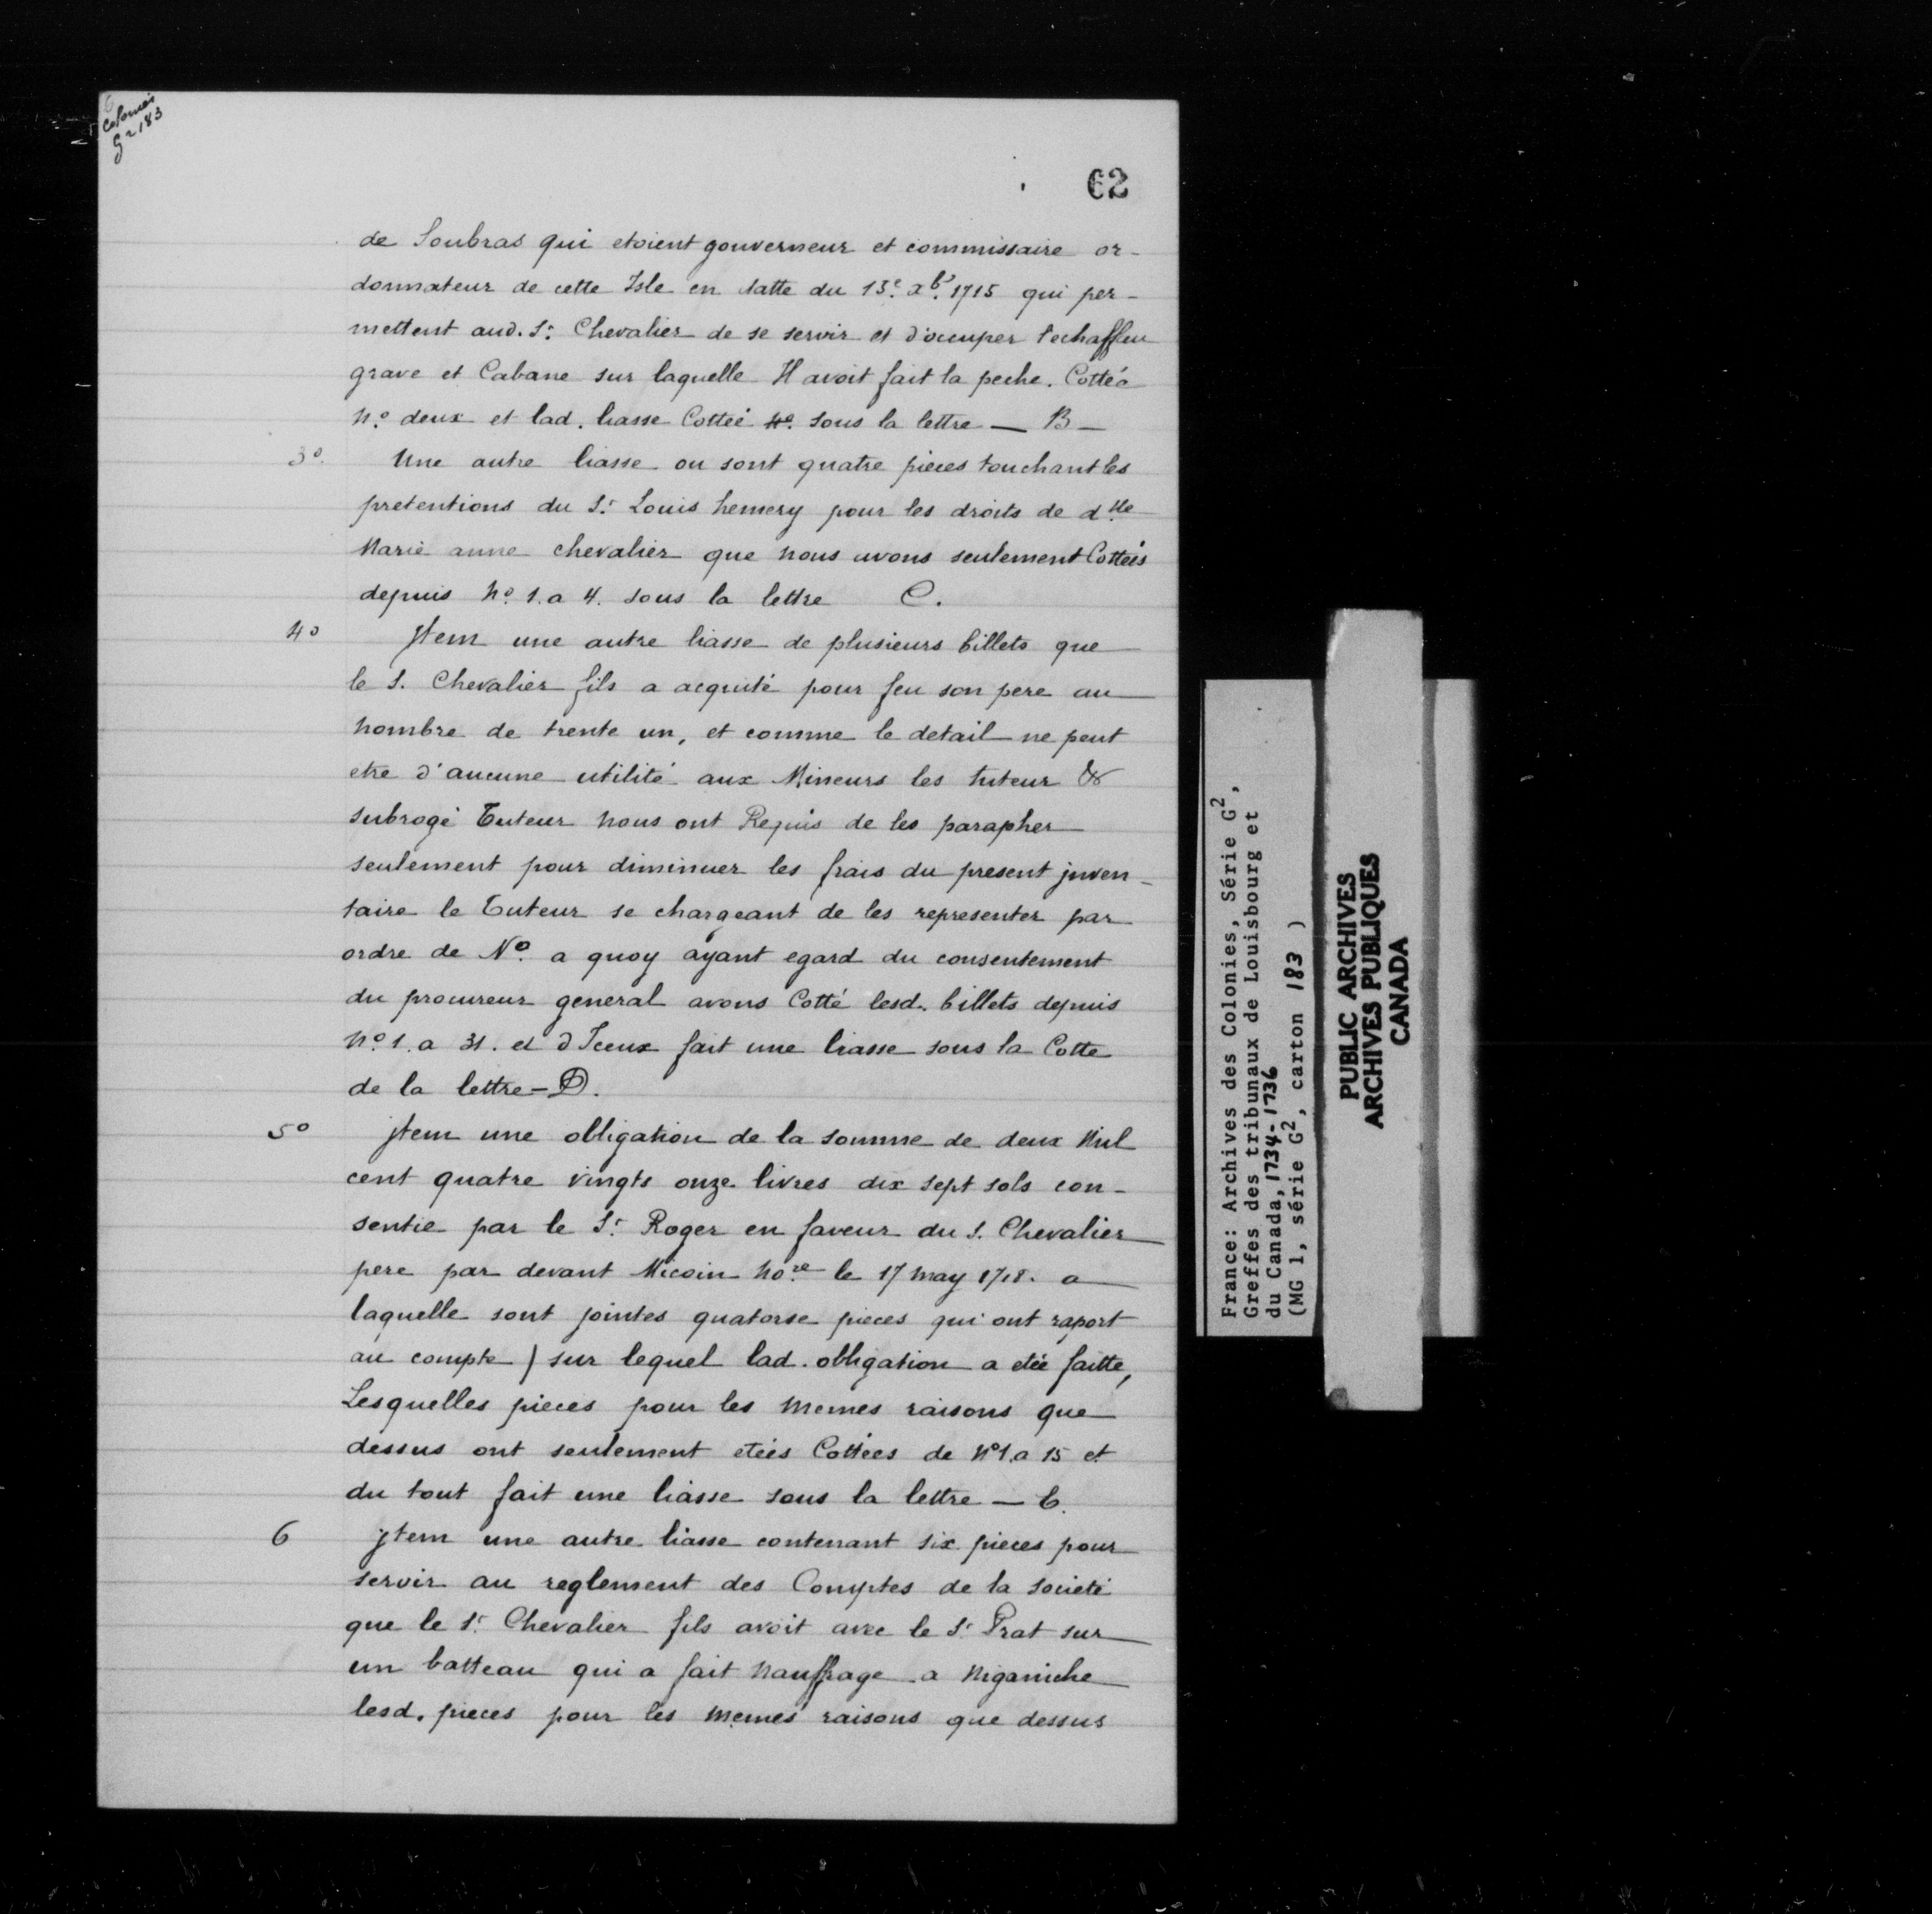 Colonies
G2 183
62
de Soubras qui etoient gouverneur et commissaire or-
donnateur de cette Isle en datte du 15.e xb.r 1715 qui per-
mettent aud. Sr. Chevalier de se servir et d'occuper l'echaffeu
grave et Cabane sur laquelle Il avoit fait la peche. Cottée
No. deux et lad. liasse Cottée No. sous la lettre — B —
3o. Une autre liasse ou sont quatre pieces touchant les
pretentions du Sr. Louis hemery pour les droits de dlle
Marie anne chevalier que nous avons seulement Cottées
depuis No. 1. a 4. sous la lettre C.
4o Jtem une autre liasse de plusieurs billets que
le S. Chevalier fils a acquité pour feu son pere au
nombre de trente un, et comme le detail ne peut
etre d'aucune utilité aux Mineurs les tuteur &
subrogé Tuteur nous ont Requis de les parapher
seulement pour diminuer les frais du present jnven-
taire le Tuteur se chargeant de les representer par
ordre de No. a quoy ayant egard du consentement
du procureur general avons Cotté lesd. billets depuis
No. 1. a 31. et d Iceux fait une liasse sous la Cotte
de la lettre — D.
5o Jtem une obligation de la somme de deux Mil
cent quatre vingts onze livres dix sept sols con-
sentie par le Sr. Roger en faveur du S. Chevalier
pere par devant Micoin No.re le 17 may 1718. a
laquelle sont jointes quatorse pieces qui ont raport
au compte ) sur lequel lad. obligation a etée faitte,
Lesquelles pieces pour les memes raisons que
dessus ont seulement etées Cottées de No 1. a 15 et
du tout fait une liasse sous la lettre — E.
6 Jtem une autre liasse contenant six pieces pour
servir au reglement des Comptes de la societé
que le Sr. Chevalier fils avoit avec le Sr Prat sur
un batteau qui a fait Nauffrage a Niganiche
lesd. pieces pour les memes raisons que dessus
France: Archives des Colonies, Série G2,
Greffes des tribunaux de Louisbourg et
du Canada, 1734-1736
(MG 1, série G2, carton 183 )
PUBLIC ARCHIVES
ARCHIVES PUBLIQUES
CANADA